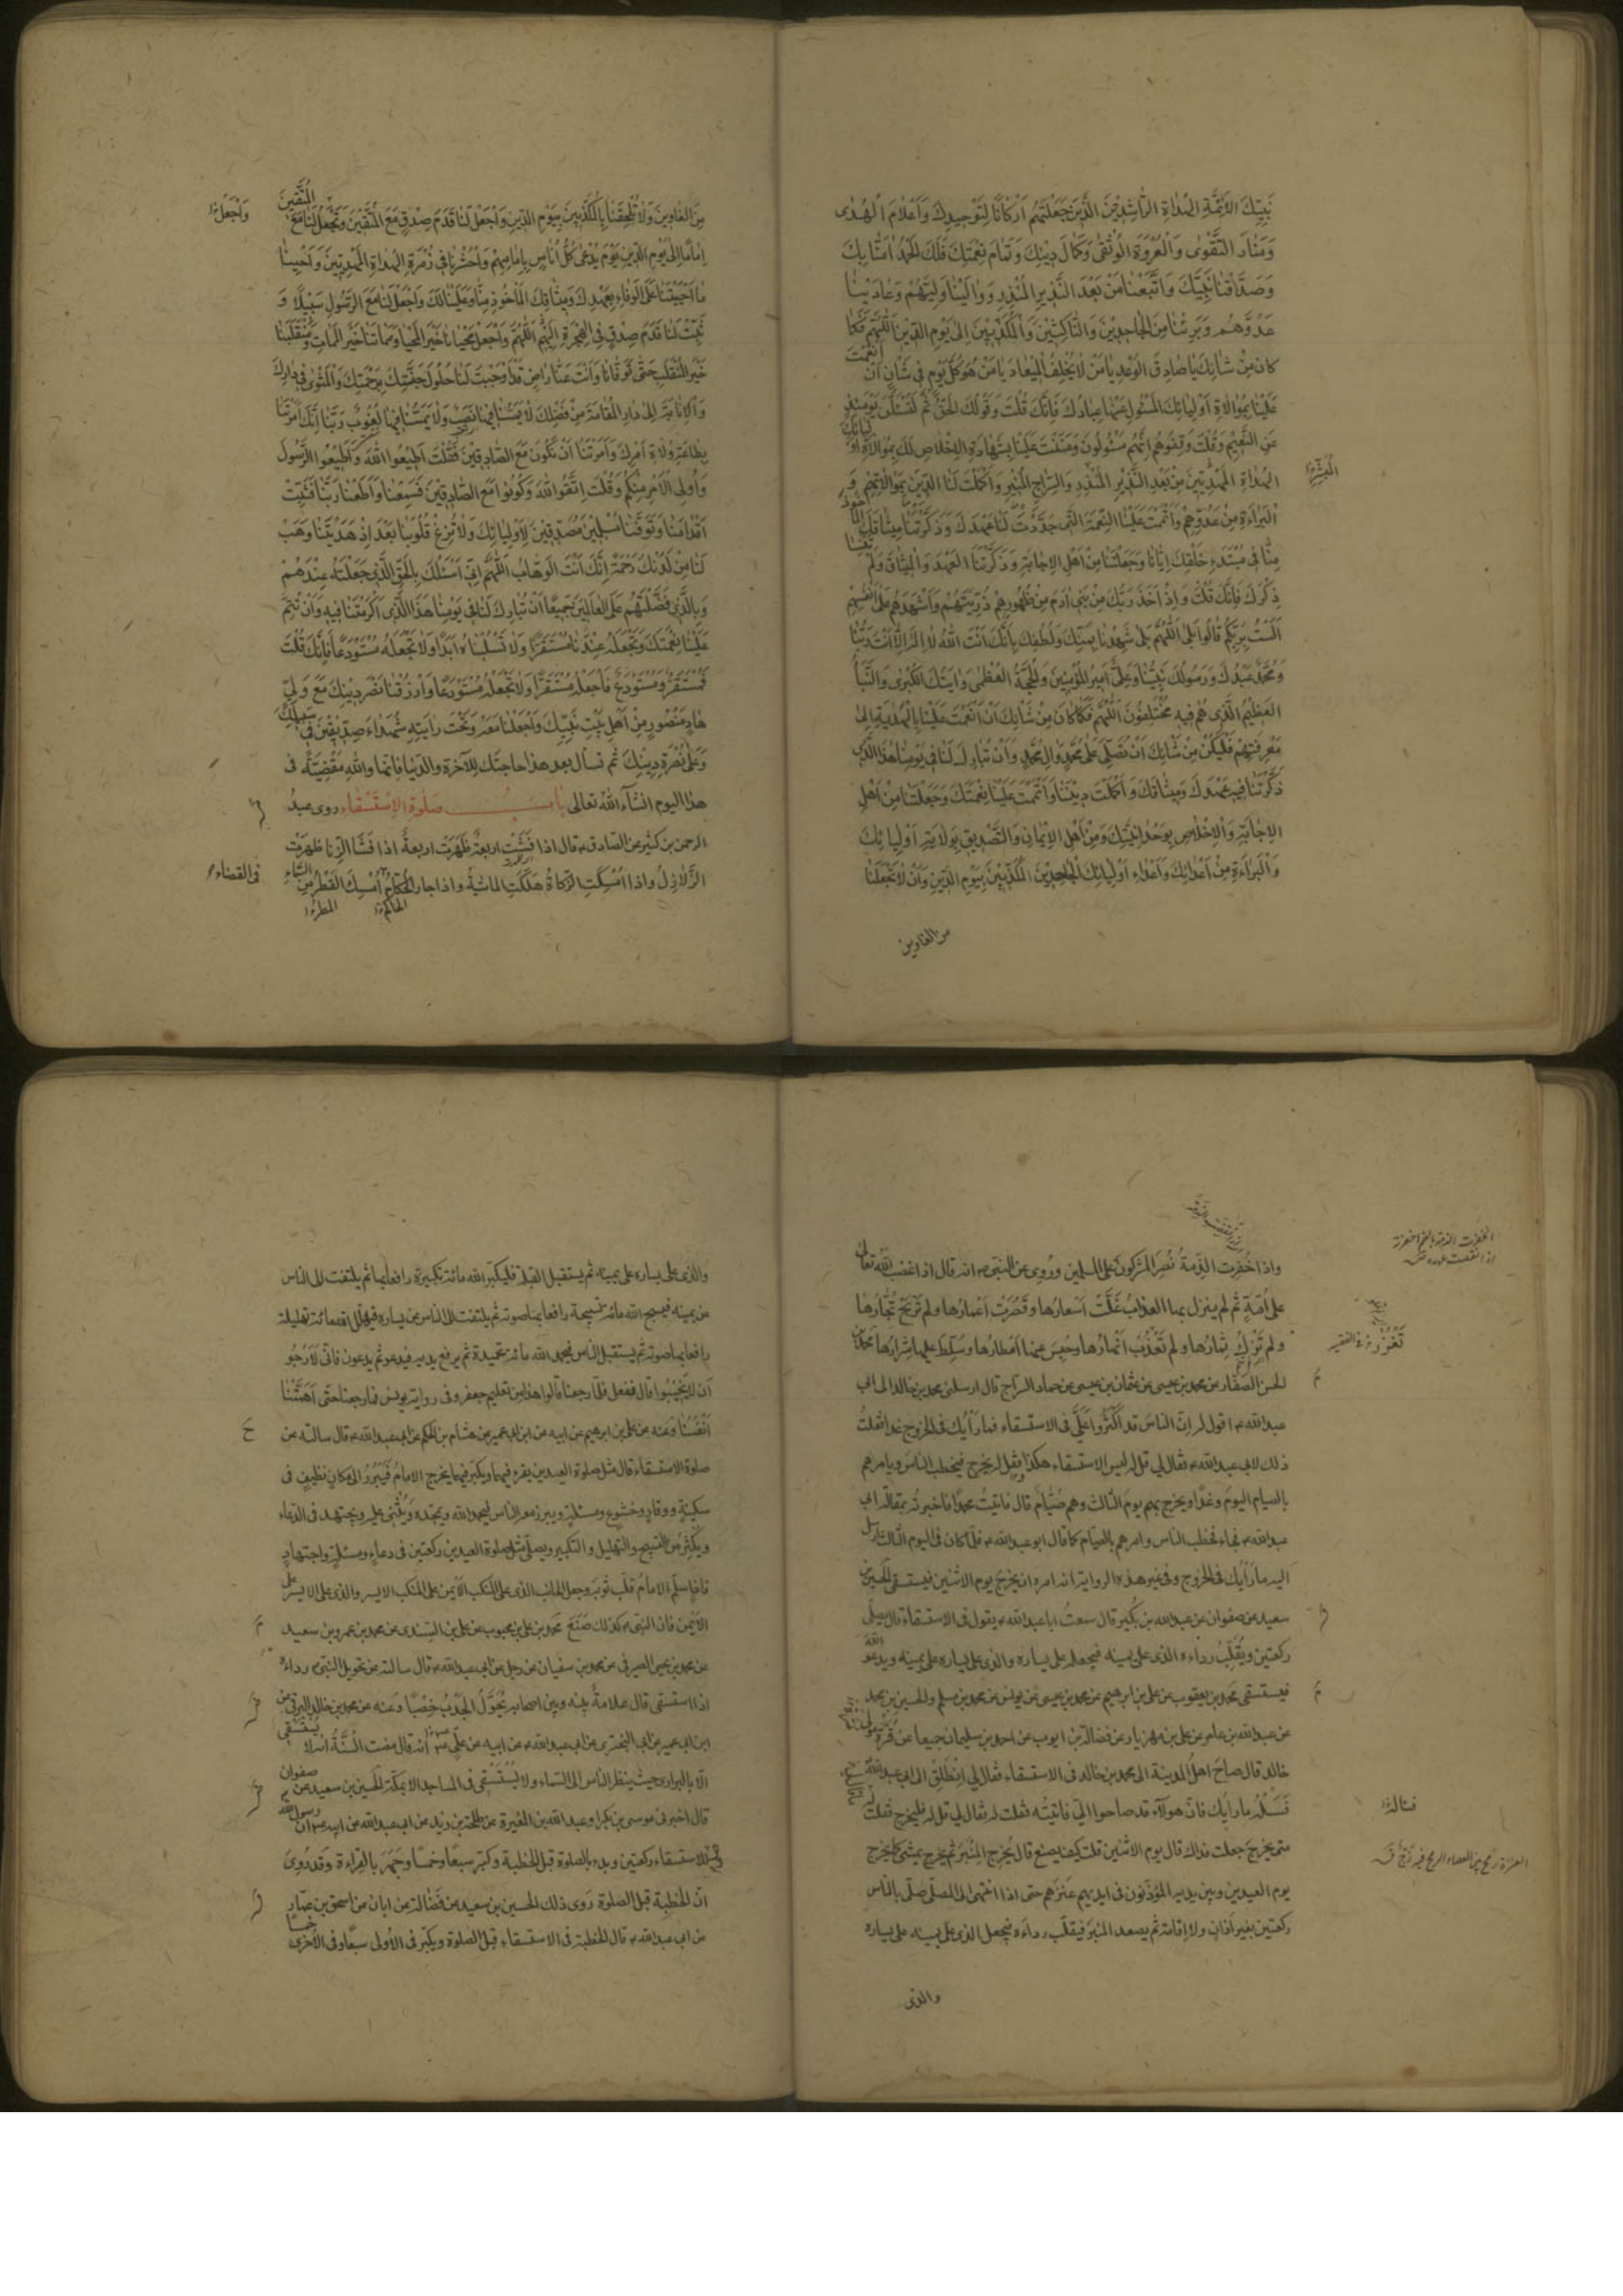 نَبِيِّكَ الاَئِمَّةِ الهُدَاةِ الرَّاشِدِينَ الَّذِينَ جَعَلْتَهُمْ اَرْكَانًا لِتَوْحِيدِكَ وَاَعْلَامَ الْهُدٰى
وَمَنَارَ التَّقْوٰى وَالْعُرْوَةَ الْوُثْقٰى وَكَمَالَ دِينِكَ وَتَمَامَ نِعْمَتِكَ فَلَكَ الحَمْدُ اٰمَنَّا بِكَ
وَصَدَّقْنَا نَبِيَّكَ وَاتَّبَعْنَا مِنْ بَعْدِ النَّذِيرِ الْمُنْذِرِ وَوَالَيْنَا وَلِيَّهُمْ وَعَادَيْنَا
عَدُوَّهُمْ وَبَرِئْنَا مِنَ الجَاحِدِينَ وَالنَّاكِثِينَ وَالْمُكَذِّبِينَ اِلٰى يَوْمِ الدِّينِ اَللّٰهُمَّ فَكَمَا
كَانَ مِنْ شَانِكَ يَا صَادِقَ الْوَعْدِ يَا مَنْ لَا يُخْلِفُ الْمِيعَادَ يَا مَنْ هُوَ كُلَّ يَوْمٍ فِي شَانٍ اَنْ اَنْعَمْتَ
عَلَيْنَا بِمُوَالَاةِ اَوْلِيَائِكَ المَسْئُولِ عَنْهَا عِبَادُكَ فَاِنَّكَ قُلْتَ وَقَوْلُكَ الْحَقُّ ثُمَّ لَتُسْئَلُنَّ يَوْمَئِذٍ
عَنِ النَّعِيمِ وَقُلْتَ وَقِفُوهُمْ اِنَّهُمْ مَسْئُولُونَ وَمَنَنْتَ عَلَيْنَا بِشَهَادَةِ الاِخْلَاصِ لَكَ بِمُوَالَاةِ اَوْلِيَائِكَ
الْهُدَاةِ الْمَهْدِيِّينَ مِنْ بَعْدِ النَّذِيرِ الْمُنْذِرِ وَالسِّرَاجِ الْمُنِيرِ وَاَكْمَلْتَ لَنَا الدِّينَ بِمُوَالَاتِهِمْ وَ
الْبَرَاءَةِ مِنْ عَدُوِّهِمْ وَاَتْمَمْتَ عَلَيْنَا النِّعْمَةَ الَّتِي جَدَّدْتَ لَنَا عَهْدَكَ وَذَكَّرْتَنَا مِيثَاقَكَ الْمَاخُوذَ
مِنَّا فِي مُبْتَدَءِ خَلْقِكَ اِيَّانَا وَجَعَلْتَنَا مِنْ اَهْلِ الاِجَابَةِ وَذَكَّرْتَنَا الْعَهْدَ وَالْمِيثَاقَ وَلَمْ تُنْسِنَا
ذِكْرَكَ فَاِنَّكَ قُلْتَ وَاِذْ اَخَذَ رَبُّكَ مِنْ بَنِي اٰدَمَ مِنْ ظُهُورِهِمْ ذُرِّيَّتَهُمْ وَاَشْهَدَهُمْ عَلٰى اَنْفُسِهِمْ
اَلَسْتُ بِرَبِّكُمْ قَالُوا بَلٰى اَللّٰهُمَّ بَلٰى شَهِدْنَا بِمَنِّكَ وَلُطْفِكَ بِاَنَّكَ اَنْتَ اللّٰهُ لَا اِلٰهَ اِلَّا اَنْتَ رَبُّنَا
وَمُحَمَّدٌ عَبْدُكَ وَرَسُولُكَ نَبِيُّنَا وَعَلِيٌّ اَمِيرُ الْمُؤْمِنِينَ وَالْحُجَّةُ الْعُظْمٰى وَاٰيَتُكَ الْكُبْرٰى وَالنَّبَأُ
العَظِيمُ الَّذِي هُمْ فِيهِ مُخْتَلِفُونَ اَللّٰهُمَّ فَكَمَا كَانَ مِنْ شَانِكَ اَنْ اَنْعَمْتَ عَلَيْنَا بِالْهِدَايَةِ اِلٰى
مَعْرِفَتِهِمْ فَلْيَكُنْ مِنْ شَانِكَ اَنْ تُصَلِّيَ عَلٰى مُحَمَّدٍ وَاٰلِ مُحَمَّدٍ وَاَنْ تُبَارِكَ لَنَا فِي يَوْمِنَا هٰذَا الَّذِي
ذَكَّرْتَنَا فِيهِ عَهْدَكَ وَمِيثَاقَكَ وَاَكْمَلْتَ دِينَنَا وَاَتْمَمْتَ عَلَيْنَا نِعْمَتَكَ وَجَعَلْتَنَا مِنْ اَهْلِ
الاِجَابَةِ وَالْاِخْلَاصِ بِوَحْدَانِيَّتِكَ وَمِنْ اَهْلِ الاِيمَانِ وَالتَّصْدِيقِ بِوِلَايَةِ اَوْلِيَائِكَ
وَالْبَرَاءَةِ مِنْ اَعْدَائِكَ وَاَعْدَاءِ اَوْلِيَائِكَ الْجَاحِدِينَ الْمُكَذِّبِينَ بِيَوْمِ الدِّينِ وَاَنْ لَا تَجْعَلَنَا
من الغاوين
مِنَ الغَاوِينَ وَلَا تُلْحِقَنَا بِالْمُكَذِّبِينَ بِيَوْمِ الدِّينِ وَاجْعَلْ لَنَا قَدَمَ صِدْقٍ مَعَ الْمُتَّقِينَ وَتَجْعَلُ لَنَا مَعَ الْمُتَّقِينَ
وَاجْعَلْ
اِمَامًا اِلٰى يَوْمِ الدِّينِ يَوْمَ يُدْعٰى كُلُّ اُنَاسٍ بِاِمَامِهِمْ وَاحْشُرْنَا فِي زُمْرَةِ الْهُدَاةِ الْمَهْدِيِّينَ وَاَحْيِنَا
مَا اَحْيَيْتَنَا عَلَى الْوَفَاءِ بِعَهْدِكَ وَمِيثَاقِكَ الْمَاْخُوذِ مِنَّا وَعَلَيْنَا لَكَ وَاجْعَلْ لَنَا مَعَ الرَّسُولِ سَبِيلًا وَ
ثَبِّتْ لَنَا قَدَمَ صِدْقٍ فِي الْهِجْرَةِ اِلَيْهِمْ اَللّٰهُمَّ وَاجْعَلْ مَحْيَانَا خَيْرَ الْمَحْيَا وَمَمَاتَنَا خَيْرَ الْمَمَاتِ وَمُنْقَلَبَنَا
خَيْرَ الْمُنْقَلَبِ حَتّٰى تَوَفَّانَا وَاَنْتَ عَنَّا رَاضٍ قَدْ اَوْجَبْتَ لَنَا حُلُولَ جَنَّتِكَ بِرَحْمَتِكَ وَالْمَثْوٰى فِي دَارِكَ
وَالْاِنَابَةَ اِلٰى دَارِ الْمُقَامَةِ مِنْ فَضْلِكَ لَا يَمَسُّنَا فِيهَا نَصَبٌ وَلَا يَمَسُّنَا فِيهَا لُغُوبٌ رَبَّنَا اِنَّكَ اَمَرْتَنَا
بِطَاعَةِ وُلَاةِ اَمْرِكَ وَاَمَرْتَنَا اَنْ نَكُونَ مَعَ الصَّادِقِينَ فَقُلْتَ اَطِيعُوا اللّٰهَ وَاَطِيعُوا الرَّسُولَ
وَاُولِي الْاَمْرِ مِنْكُمْ وَقُلْتَ اِتَّقُوا اللّٰهَ وَكُونُوا مَعَ الصَّادِقِينَ فَسَمِعْنَا وَاَطَعْنَا رَبَّنَا فَثَبِّتْ
اَقْدَامَنَا وَتَوَفَّنَا مُسْلِمِينَ مُصَدِّقِينَ لِاَوْلِيَائِكَ وَلَا تُزِغْ قُلُوبَنَا بَعْدَ اِذْ هَدَيْتَنَا وَهَبْ
لَنَا مِنْ لَدُنْكَ رَحْمَةً اِنَّكَ اَنْتَ الْوَهَّابُ اَللّٰهُمَّ اِنِّي اَسْئَلُكَ بِالْحَقِّ الَّذِي جَعَلْتَهُ عِنْدَهُمْ
وَبِالَّذِي فَضَّلْتَهُمْ عَلَى الْعَالَمِينَ جَمِيعًا اَنْ تُبَارِكَ لَنَا فِي يَوْمِنَا هٰذَا الَّذِي اَكْرَمْتَنَا فِيهِ وَاَنْ تُتِمَّ
عَلَيْنَا نِعْمَتَكَ وَتَجْعَلَهُ عِنْدَنَا مُسْتَقَرًّا وَلَا تَسْلُبَنَاهُ اَبَدًا وَلَا تَجْعَلَهُ مُسْتَوْدَعًا فَاِنَّكَ قُلْتَ
فَمُسْتَقَرٌّ وَمُسْتَوْدَعٌ فَاجْعَلْهُ مُسْتَقَرًّا وَلَا تَجْعَلْهُ مُسْتَوْدَعًا وَارْزُقْنَا نَصْرَ دِينِكَ مَعَ وَلِيٍّ
هَادٍ مَنْصُورٍ مِنْ اَهْلِ بَيْتِ نَبِيِّكَ وَاجْعَلْنَا مَعَهُ وَتَحْتَ رَايَتِهِ شُهَدَاءَ صِدِّيقِينَ فِي سَبِيلِكَ
وَعَلٰى نُصْرَةِ دِينِكَ ثم تسأل بعد هذا حاجتك للآخرة والدنيا فانها والله مَقْضِيَّة فى
هذا اليوم انشآء الله تعالى بَابُ صَلٰوةِ الاِسْتِسْقَاءِ روى عبدُ
الرحمن بن كثير عن الصادق قال اذا فَشَتْ اربعةٌ ظَهَرَتْ اربعةٌ اذا فَشَا الزِّنَا ظهرَتِ
الزَّلَازِلُ واذا اُمْسِكَتِ الزَّكاةُ هَلَكَتِ الماشيةُ واذا جار الحُكّامُ اُمْسِكَ القَطْرُ مِنَ السَّمَاءِ
فى القضاء
الحاكم
المطر
واذا خُفِرَتِ الذِّمَةُ نُصِرَ المشركون على المسلمين ورُوى عن النبى انه قال اذا غضب اللهُ تعالى
على اُمّةٍ ثم لم ينزل بها العذابُ غَلَتْ اَسعارُها وقَصُرَتْ اَعمارُها ولم تَرْبَحْ تُجّارُها
ولم تَزْكُ ثِمَارُها ولم تَعْذُبْ اَنْهارُها وحُبِسَ عنها اَمْطارُها وسُلِّطَ عليها شِرارُها محمد بن
الحسن الصَّفّار عن محمد بن عيسى عن عثمان بن عيسى عن حماد السّراج قال ارسلنى محمد بن خالد الى ابى
عبد الله اقول له اِنّ الناسَ قد اكْثَرُوا عَلَيَّ فى الاستسقاء فما رَأيُكَ فى الخروج غدا فقلتُ
ذلك لابى عبد الله فقال لى قل له ليس الاستسقاء هكذا فقل له يخرج فيخطب الناس ويامرهم
بالصيام اليومَ وغدًا ويخرج بهم يومَ الثالث وهم صُيَّام قال فاتيتُ محمدًا فاخبرته بمقالة ابى
عبد الله فجاء فخطب الناس وامرهم بالصيام كما قال ابو عبد الله فلمّا كان فى اليوم الثالث ارسل
اليه ما رَأيُك فى الخروج وفى غير هذه الرواية انه امره ان يخرج يوم الاثنين فيستسقى الحسين بن
سعيد عن صفوان عن عبد الله بن بُكَير قال سمعتُ ابا عبد الله يقول فى الاستسقاء قال يصلّى
ركعتين ويُقَلِّبُ رداءه الذى على يمينه فيجعله على يساره والذى على يساره على يمينه ويدعو اللهَ
فيستسقى محمد بن يعقوب عن على بن ابرهيم عن محمد بن عيسى عن يونس عن محمد بن مسلم والحسين بن محمد
عن عبد الله بن عامر عن على بن مهزيار عن فضالة بن ايوب عن احمد بن سليمان جميعا عن مُرَّة مولى
خالد قال صاحَ اهلُ المدينة الى محمد بن خالد فى الاستسقاء فقال لى اِنْطَلِقْ الى ابى عبد الله
فَسَلْهُ ما رَأيُك فانّ هولآء قد صاحوا اِلَيَّ فاتيتُه فقلت له فقال لى قل له فليخرج فقلت
متى يخرج جعلت فداك قال يوم الاثنين قلت كيف يصنع قال يُخرِج المِنْبَرَ ثم يخرج يمشى كما يخرج
يوم العيدين وبين يديه المؤذنون فى ايديهم عَنَزُهم حتى اذا انتهى الى المصلّى صلّى بالناس
ركعتين بغير اَذانٍ ولا اِقامة ثم يصعد المنبرَ فيقلّب رداءَه فيجعل الذى على يمينه على يساره
والذى
والذى على يساره على يمينه ثم يستقبل القبلة فيكبّر الله مائة تكبيرة رافعا بها ثم يلتفت الى الناس
عن يمينه فيسبح الله مائة تسبيحة رافعا بها صوته ثم يلتفت الى الناس عن يساره فيهلّل الله مائة تهليلة
رافعا بها صوته ثم يستقبل الناس فيحمد الله مائة تحميدة ثم يرفع يديه فيدعو ثم يدعون فانى لَاَرْجُو
اَن لا يَخِيبُوا قال ففعل فلمّا رجعنا قالوا هذا من تعليم جعفر وفى رواية يونس فما رجعنا حتى اَهَمَّتْنَا
اَنْفُسُنَا وَعنه عن على بن ابرهيم عن ابيه عن ابن ابى عمير عن هشام بن الحكم عن ابى عبد الله قال سالته عن
صلوة الاستسقاء قال مثل صلوة العيدين يقرء فيهما ويكبّر فيهما يخرج الامامُ فَيَبْرُزُ الى مكان نظيفٍ فى
سكينةٍ ووقارٍ وخشوع ومسئلةٍ ويبرز معه الناس فيحمد الله ويمجّده ويُثنى عليه ويجتهد فى الدعاء
ويُكْثِرُ من التسبيح والتهليل والتكبير ويصلّى مثل صلوة العيدين ركعتين فى دعاءٍ ومسئلةٍ واجتهادٍ
فاذا سلّم الامامُ قَلَبَ ثوبَه وجعل الجانب الذى على المَنْكِب الاَيمن على المنكب الايسر والذى على الايسر على
الاَيْمَنِ فان النبىّ كذلك صَنَعَ محمد بن على بن محبوب عن على بن السِّنْدى عن محمد بن عمرو بن سعيد
عن محمد بن يحيى الصيرفى عن محمد بن سفيان عن رجل عن ابى عبد الله قال سالته عن تحويل النبى رداءه
اذا استسقى قال علامةٌ بينه وبين اصحابه تُحَوِّلُ الجَدْبَ خِصْبًا وَعنه عن محمد بن خالد البرقى عن
ابن ابى عمير عن ابى البَخْتَرى عن ابى عبد الله عن ابيه عن علىّ انه قال مضت السُّنَّةُ انه لا يُسْتَسْقٰى
الّا بالبرارى حيث ينظر الناس الى السّماء ولا يُسْتَسْقٰى فى المساجد الا بمكّة الحسين بن سعيد عن صفوان
قال اخبرنى موسى بن بكر او عبد الله بن المغيرة عن طلحة بن زيد عن ابى عبد الله عن ابيه ان رسول الله
للاستسقاء ركعتين وبدء بالصلوة قبل الخطبة وكبّر سبعًا وخمسًا وجَهَرَ بالقراءة وقد رُوِىَ
انّ الخطبة قبل الصلوة رَوى ذلك الحسين بن سعيد عن فَضَالة عن ابان عن اسحق بن عمّار
عن ابى عبد الله قال الخطبة فى الاستسقاء قبل الصلوة ويكبّر فى الاُولى سبعًا وفى الاُخرٰى خمسا